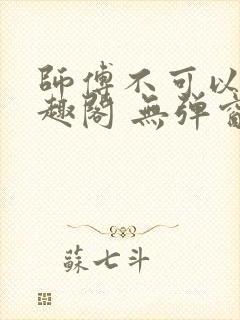 師傅不可以
趣閣 無彈窗
蘇七斗